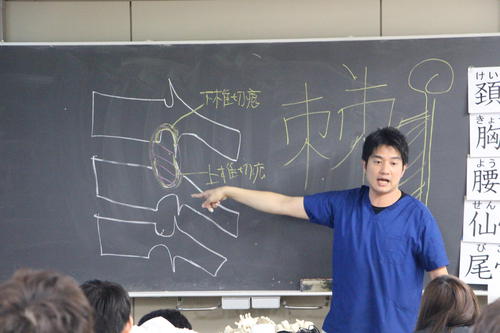 下椎切痕
上椎切痕
けい
頚
きょ
胸
よう
腰
せん
仙
び
尾